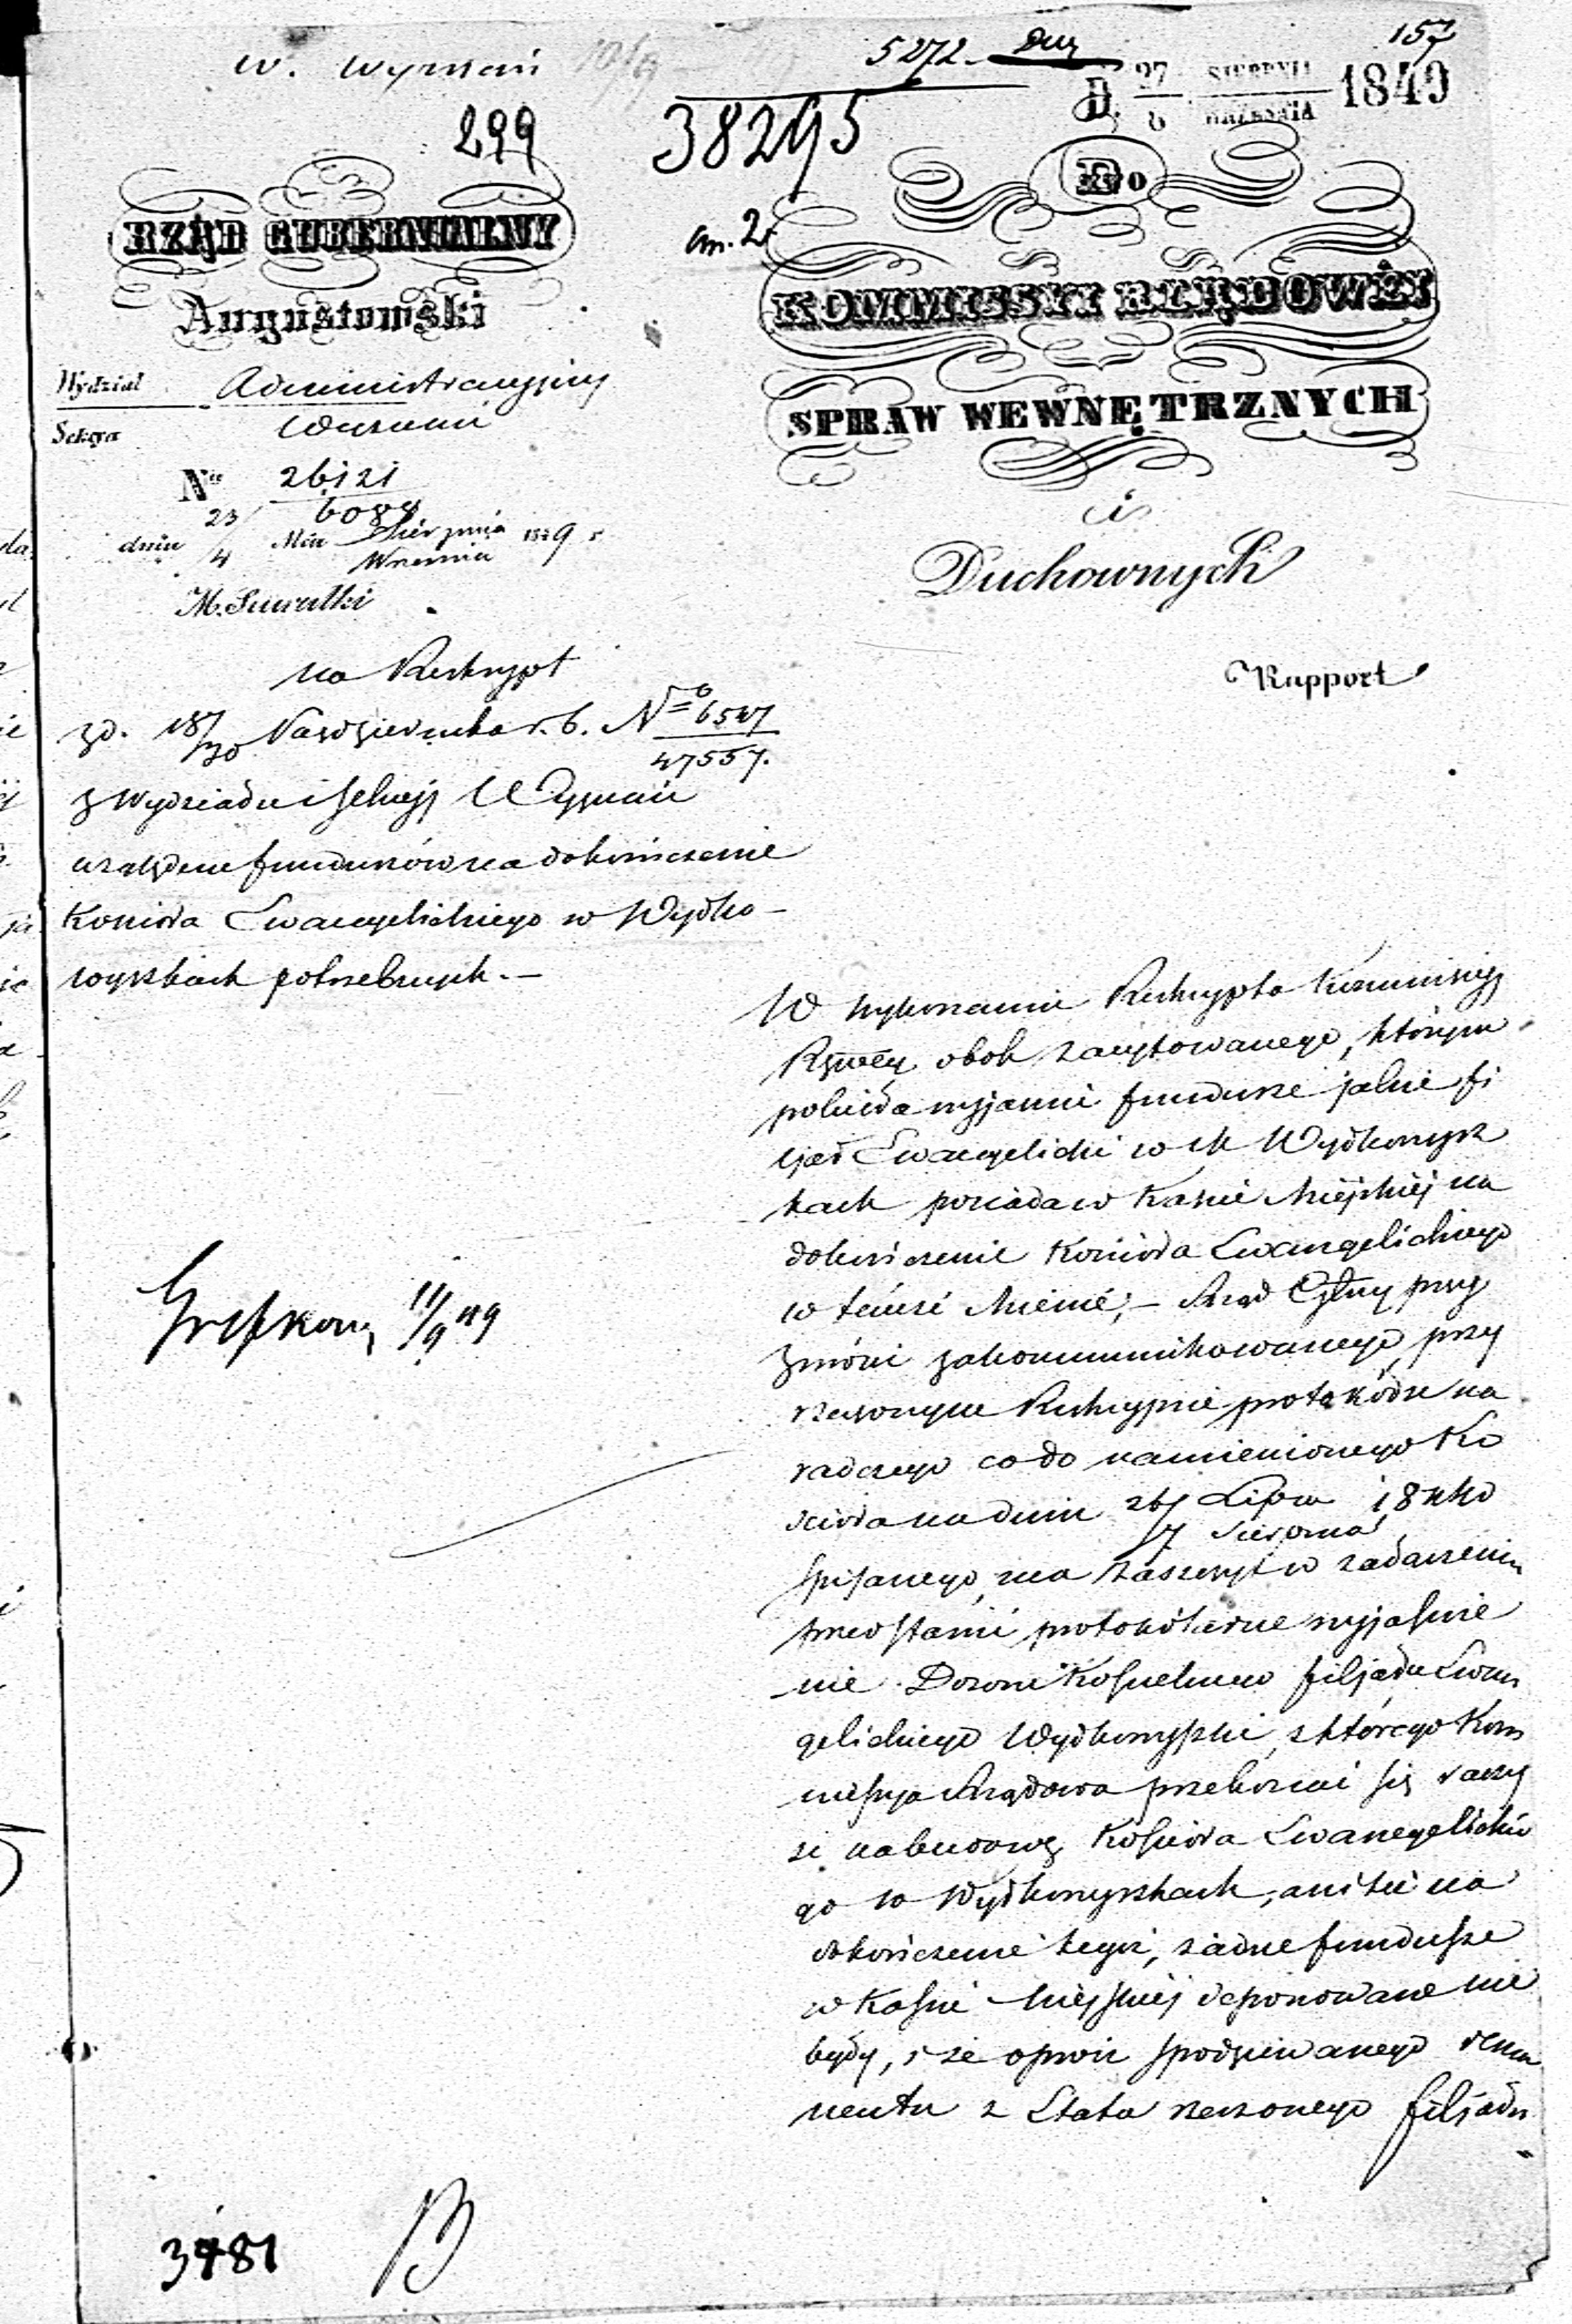 W. Wyznań
5272 Duz
157
299
38295
D. 27 SIERPNIA 1849
6 WRZEŚNIA
an. 2
RZĄD GUBERNIALNY
Augustowski
Do
KOMMISSYI RZĄDOWÉY
SPRAW WEWNĘTRZNYCH
i
Duchownych
Wydział Administracyjny
Sekcya Wyznań
Nro 26121
dnia 23/4 Mca Sierpnia 1849 r
Września
M. Suwałki
Rapport
na Reskrypt
z d. 18/30 Października r. b. No 6547
47557.
z Wydziału i Sekcyi Wyznań
względem funduszów na dokończenie
Kościoła Ewangelickiego w Wyłko-
wyszkach potrzebnych. —
W wykonaniu Reskryptu Kommissyi
Rząwéy obok zacytowanego, którym
poleciła wyjaśnić fundusze jakie fi
ljał Ewangelicki w M Wyłkowysz
kach posiada w Kassie Miejskiej na
dokończenie Kościoła Ewangelickiego
w témże Mieście; — Rząd Gblny przy
zwróceniu zakommunikowanego przy
rzeczonym Reskrypcie protokółu na
radczego co do namienionego Ko
ścioła na dniu 26 Lipca 1848
7 Sierpnia
spisanego, ma zaszczyt w załączeniu
przedstawić protokólarne wyjaśnie
nie Dozoru Kościelnego filjału Ewan
gelickiego Wyłkowyszki, z którego Kom
missya Rządowa przekonać się raczy
że na budowę Kościoła Ewangelickie
go w Wyłkowyszkach, ani też na
dokończenie tegoż, żadne fundusze
w Kassie Miejskiéj deponowane nie
były, i że oprócz spodziewanego rema
nentu z Etatu rzeczonego filjału
11/9 49
3481